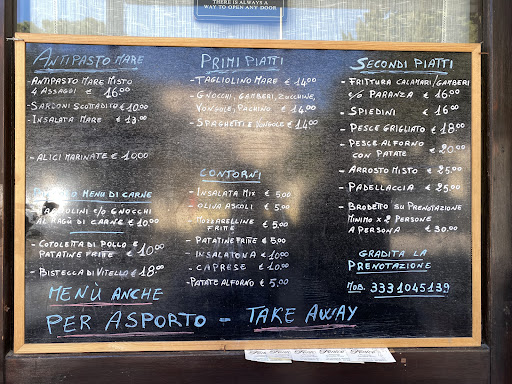 THERE IS ALWAYS A
WAY TO OPEN ANY DOOR
ANTIPASTO MARE
-ANTIPASTO MARE MISTO
4 ASSAGGI € 16,00
-SARDONI SCOTTADITO € 10,00
-INSALATA MARE € 13,00
-ALICI MARINATE € 10,00
MENU DI CARNE
O GNOCCHI
AL RAGÙ DI CARNE € 10,00
-COTOLETTA DI POLLO E
PATATINE FRITTE € 10,00
-BISTECCA DI VITELLO € 18,00
PRIMI PIATTI
-TAGLIOLINO MARE € 14,00
-GNOCCHI, GAMBERI, ZUCCHINE,
VONGOLE, PACHINO € 14,00
-SPAGHETTI E VONGOLE € 14,00
CONTORNI
-INSALATA MIX € 5,00
OLIVA ASCOLI € 5,00
-MOZZARELLINE
FRITTE € 5,00
-PATATINE FRITTE € 5,00
-INSALATONA € 10,00
-CAPRESE € 10,00
-PATATE AL FORNO € 5,00
SECONDI PIATTI
-FRITTURA CALAMARI/GAMBERI
E/O PARANZA € 16,00
-SPIEDINI € 16,00
-PESCE GRIGLIATO € 18,00
-PESCE AL FORNO € 20,00
CON PATATE
-ARROSTO MISTO € 25,00
-PADELLACCIA € 25,00
-BRODETTO SU PRENOTAZIONE
MINIMO X 2 PERSONE
A PERSONA € 30,00
GRADITA LA
PRENOTAZIONE
MOB. 3331045139
MENÙ ANCHE
PER ASPORTO - TAKE AWAY